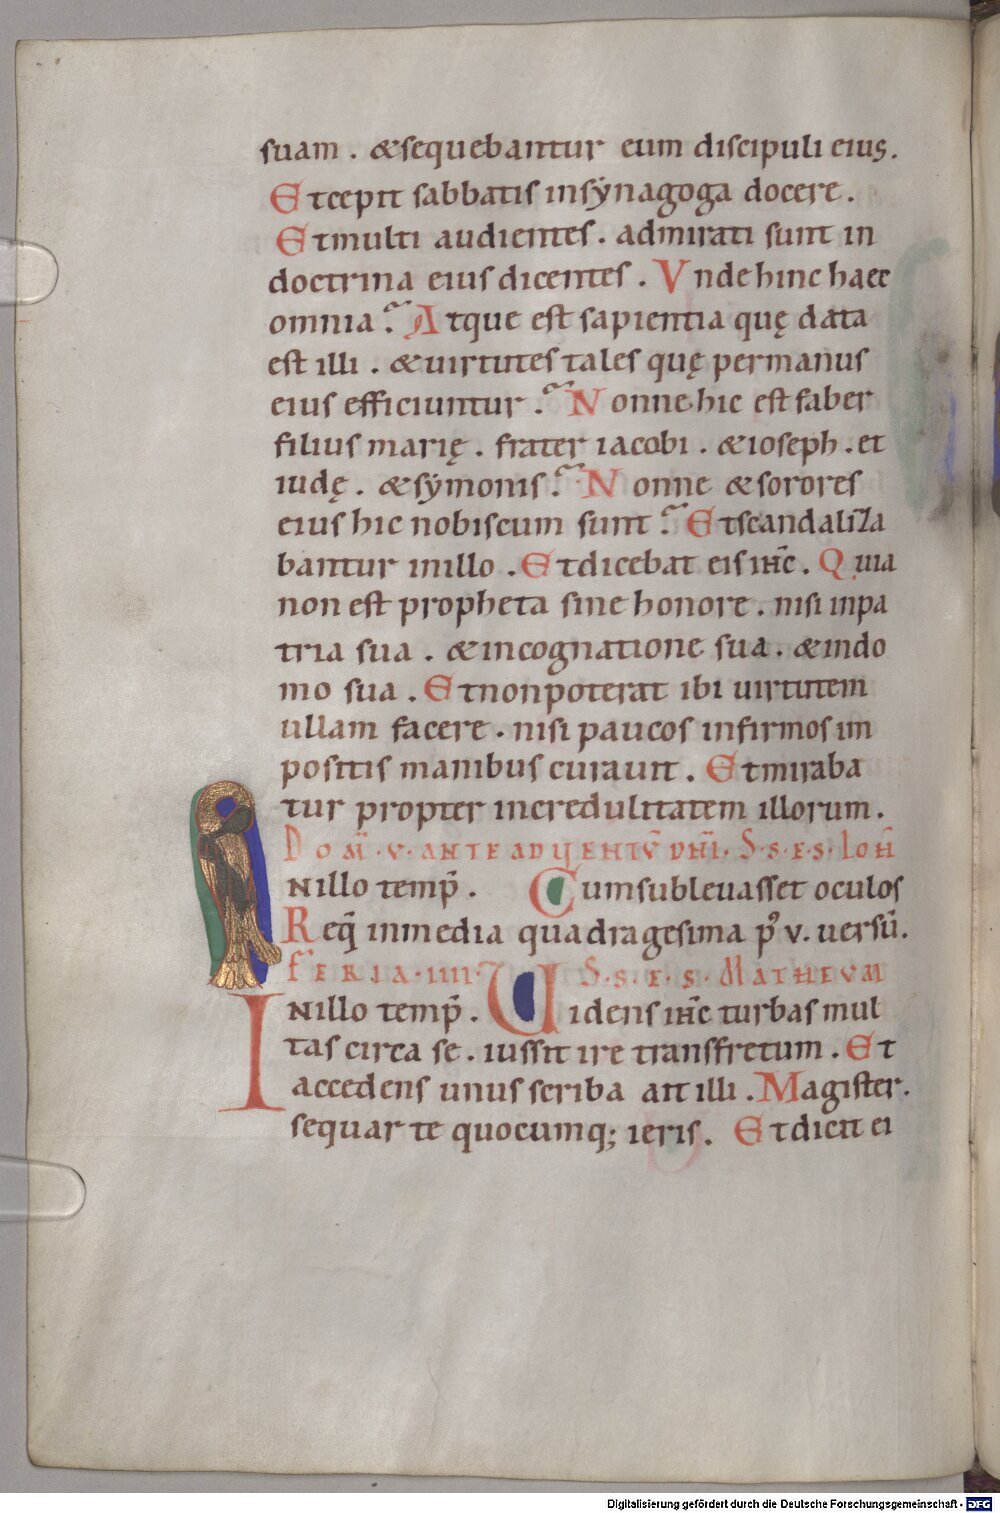 suam . & sequebantur eum discipuli eius.
Et cepit sabbatis in sẏnagoga docere .
Et multi audientes . admirati sunt in
doctrina eius dicentes . Vnde hinc haec
omnia ? Atque est sapientia quę data
est illi . & uirtutes tales quę per manus
eius efficiuntur ? Nonne hic est faber
filius marię . frater iacobi . & ioseph . et
iudę . & sẏmonis ? Nonne & sorores
eius hic nobiscum sunt ? Et scandaliza
bantur in illo . Et dicebat eis ihc̄ . Quia
non est propheta sine honore . nisi in pa
tria sua . & in cognatione sua . & in do
mo sua . Et non poterat ibi uirtutem
ullam facere . nisi paucos infirmos im
positis manibus curauit . Et miraba
tur propter incredulitatem illorum .
Dom̄ . v . ante aduentū dn̄i . S . s . e . s . Ioh̄
In illo temp̄ . Cum subleuasset oculos
Req̄ in media quadragesima p̓ v. uersū.
Feria . iiii . S . s . e . s . Matheum
In illo temp̄ . Uidens ihc̄ turbas mul
tas circa se . iussit ire transfretum . Et
accedens unus scriba ait illi . Magister .
sequar te quocumq; ieris . Et dicit ei
Digitalisierung gefördert durch die Deutsche Forschungsgemeinschaft - DFG